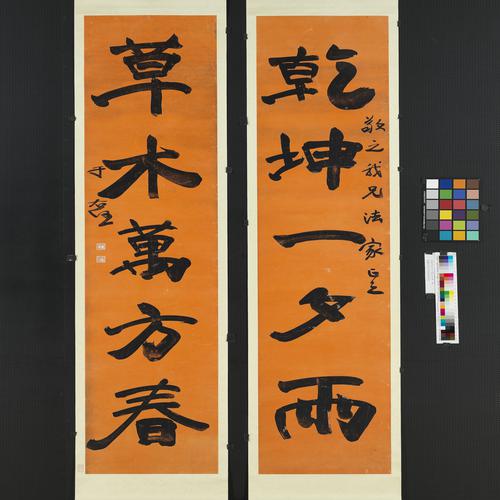 乾坤一夕雨
敬之我兄法家正之
草木萬方春